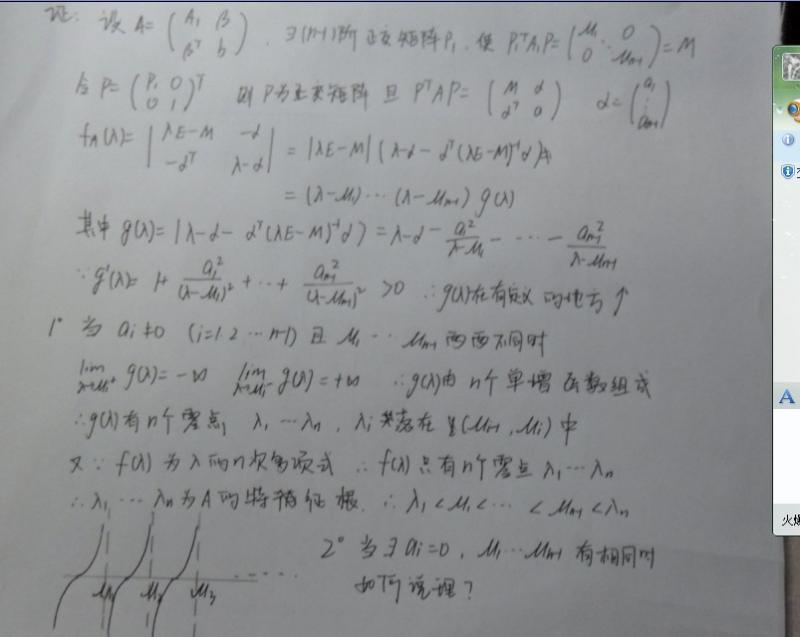 证: 设 A=(A₁ β βᵀ b), ∃(n-1)阶正交矩阵P₁, 使 P₁ᵀA₁P₁=(μ₁ ⋱ 0 0 μₙ₋₁)=M
令 P=(P₁ 0 0 1)ᵀ 则 P为正交矩阵 且 PᵀAP=(M α αᵀ a) α=(a₁ ⋮ aₙ₋₁)
f_A(λ)=|λE-M -α -αᵀ λ-a| = |λE-M| (λ-a-αᵀ(λE-M)⁻¹α)
=(λ-μ₁)⋯(λ-μₙ₋₁) g(λ)
其中 g(λ)=|λ-a-αᵀ(λE-M)⁻¹α)=λ-a-a₁²/(λ-μ₁)-⋯-aₙ₋₁²/(λ-μₙ₋₁)
∵g'(λ)=1+a₁²/(λ-μ₁)²+⋯+aₙ₋₁²/(λ-μₙ₋₁)²>0 ∴g(λ)在有定义的地方↑
1° 当 aᵢ≠0 (i=1.2⋯n-1) 且 μ₁⋯μₙ₋₁ 两两不同时
lim λ→μᵢ⁺ g(λ)=-∞ lim λ→μᵢ⁻ g(λ)=+∞ ∴g(λ)由n个单增函数组成
∴g(λ)有n个零点, λ₁⋯λₙ, λᵢ 落在 (μᵢ₋₁, μᵢ)中
又∵f(λ)为λ的n次多项式 ∴f(λ)只有n个零点 λ₁⋯λₙ
∴λ₁⋯λₙ为A的特征根. ∴λ₁<μ₁<⋯<μₙ₋₁<λₙ
2° 当∃aᵢ=0, μ₁⋯μₙ₋₁ 有相同时
如何说理?
μ₁ μ₂ μ₃
A
火爆